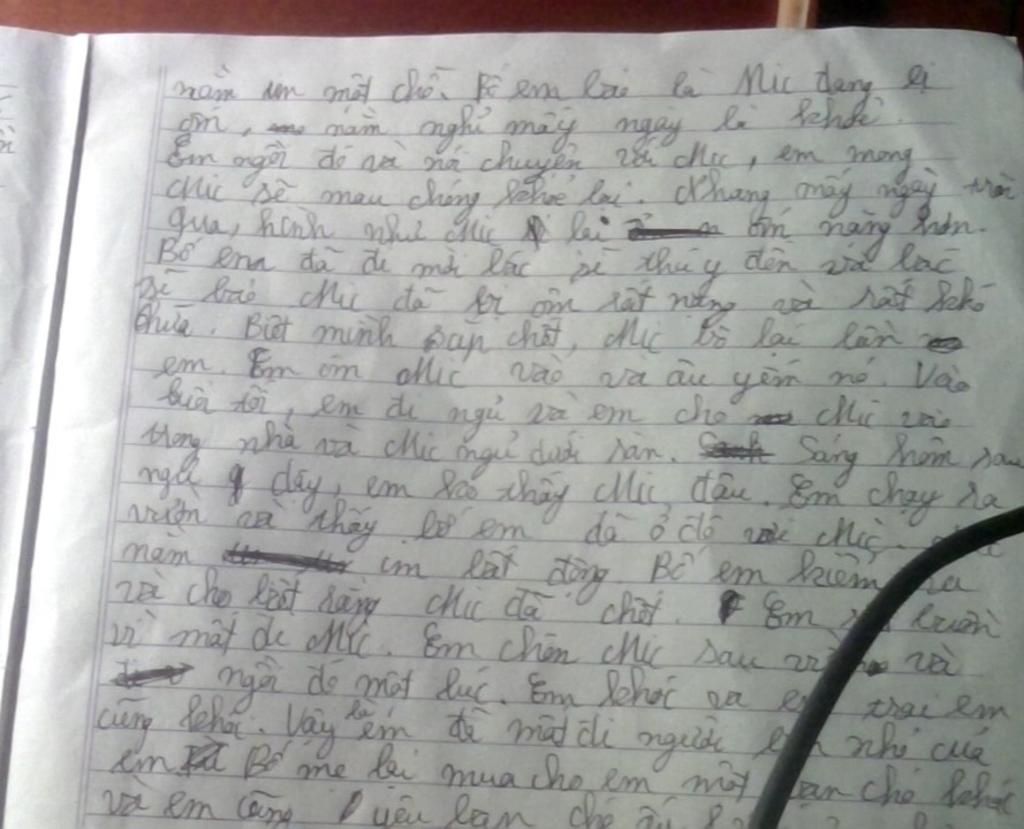 nằm im một chỗ. Bố em bảo là Mic đang bị
ốm, nằm nghỉ mấy ngày là khỏe.
Em ngồi đó và nói chuyện với Mic, em mong
Mic sẽ mau chóng khỏe lại. Nhưng mấy ngày trôi
qua, hình như Mic lại ốm nặng hơn.
Bố em đã đi mời bác sĩ thú y đến và bác
sĩ bảo Mic đã bị ốm rất nặng và rất khó
chữa. Biết mình sắp chết, Mic bò lại lần
em. Em ôm Mic vào và âu yếm nó. Vào
buổi tối, em đi ngủ và em cho Mic vào
trong nhà và Mic ngủ dưới sàn. Sáng hôm sau
ngủ dậy, em ko thấy Mic đâu. Em chạy ra
vườn và thấy bố em đã ở đó với Mic.
nằm im bất động. Bố em kiểm ra
và cho biết rằng Mic đã chết. Em buồn
vì mất đi Mic. Em chôn Mic sau và
ngồi đó một lúc. Em khóc và em trai em
cũng khóc. Vậy là em đã mất đi người nhỏ của
em Bố mẹ lại mua cho em một bạn chó khác
và em cũng yêu bạn chó ấy